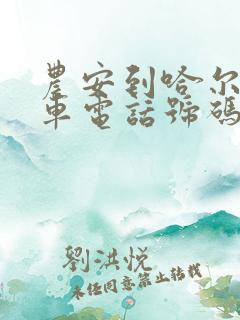 農安到哈尔
車電話號碼
劉洪悦
未经同意禁止转载